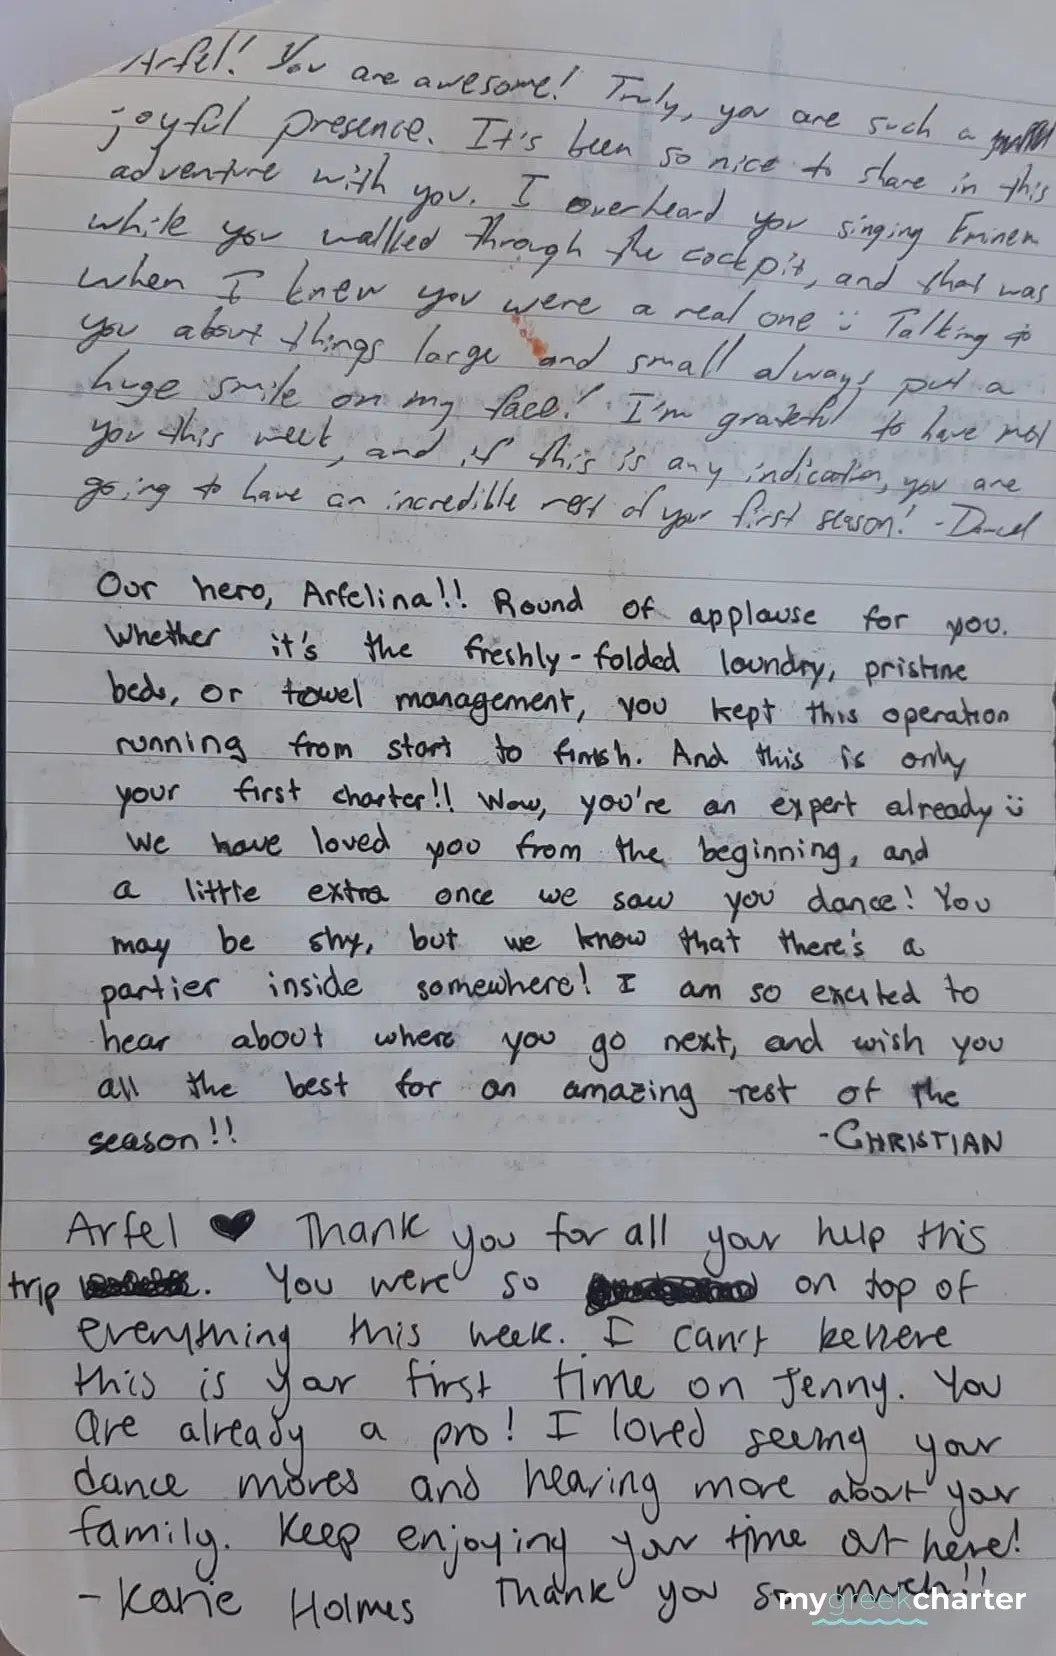 Arfel! You are awesome! Truly, you are such a
joyful presence. It's been so nice to share in this
adventure with you. I overheard you singing Eminem
while you walked through the cockpit, and that was
when I knew you were a real one :) Talking to
you about things large and small always put a
huge smile on my face! I'm grateful to have met
you this week, and if this is any indication, you are
going to have an incredible rest of your first season! -
Our hero, Arfelina!! Round of applause for you.
Whether it's the freshly-folded laundry, pristine
beds, or towel management, you kept this operation
running from start to finish. And this is only
your first charter!! Wow, you're an expert already :)
We have loved you from the beginning, and
a little extra once we saw you dance! You
may be shy, but we know that there's a
partier inside somewhere! I am so excited to
hear about where you go next, and wish you
all the best for an amazing rest of the
season!! -CHRISTIAN
Arfel ♥ Thank you for all your help this
trip . You were so on top of
everything this week. I can't believe
this is your first time on Jenny. You
are already a pro! I loved seeing your
dance moves and hearing more about your
family. Keep enjoying your time out here!
- Karie Holmes Thank you so much!!
mygreekcharter